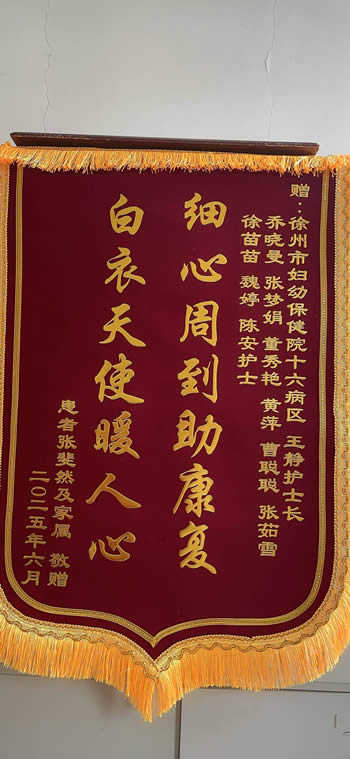 赠：徐州市妇幼保健院十六病区 王静护士长
乔晓曼 张梦娟 董秀艳 黄萍 曹聪聪 张茹雪
徐苗苗 魏婷 陈安护士
细心周到助康复
白衣天使暖人心
患者张斐然及家属 敬赠
二〇二五年六月